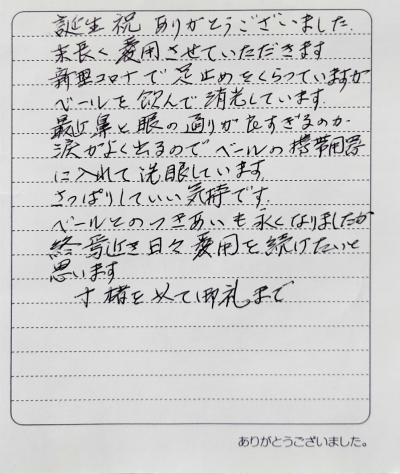 誕生祝ありがとうございました.
末長く愛用させていただきます
新型コロナで足止めをくらっていますが
ベールを飲んで消光しています.
最近鼻と眼の通りが良すぎるのか
涙がよく出るのでベールの携帯用容
に入れて洗眼しています.
さっぱりしていい気持です.
ベールとのつきあいも永くなりましたが
終焉近き日々愛用を続けたいと
思います
寸楮を以て御礼まで
ありがとうございました。